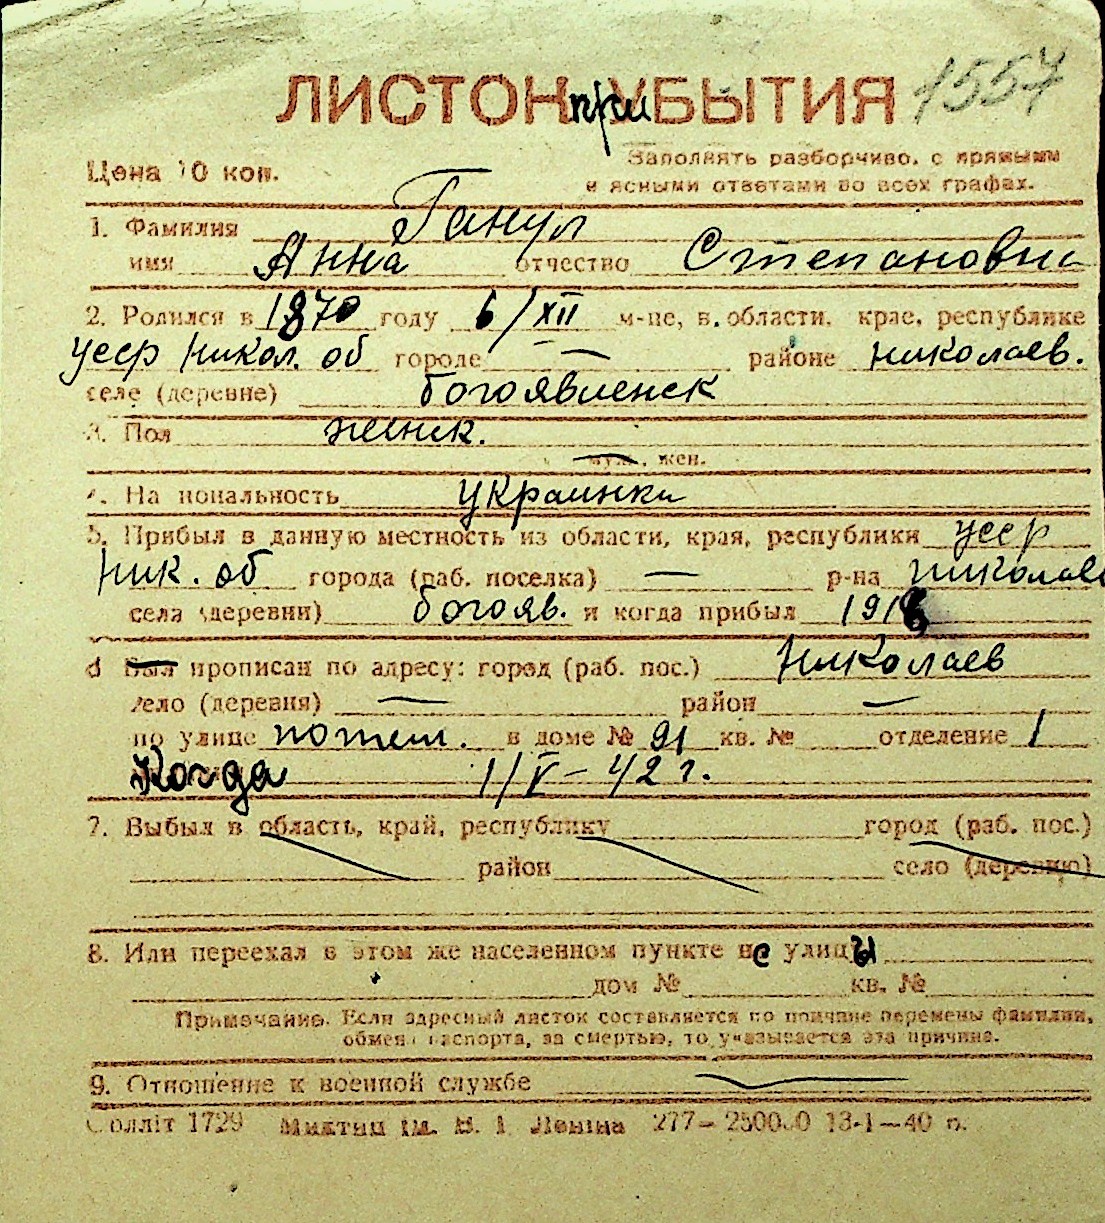 ЛИСТОК приУБЫТИЯ 1557
Цена 10 коп.
Заполнять разборчиво, с прямыми
и ясными ответами во всех графах.
1. Фамилия Ганул
имя Анна отчество Степановна
2. Родился в 1870 году 6/XII м-це, в области, крае, республике
усср Никол. об городе — районе николаев.
селе (деревне) богоявленск
3. Пол женск.
муж., жен.
4. Национальность украинка
5. Прибыл в данную местность из области, края, республики усср
Ник. об города (раб. поселка) — р-на николаев
села (деревни) богояв. и когда прибыл 191
6 Был прописан по адресу: город (раб. пос.) Николаев
село (деревня) — район —
по улице потем. в доме № 91 кв. № отделение 1
Когда 1/V – 42 г.
7. Выбыл в область, край, республику город (раб. пос.)
район село (деревню)
8. Или переехал в этом же населенном пункте не улицы
дом № кв. №
Примечание. Если адресный листок составляется по причине перемены фамилии,
обмена паспорта, за смертью, то указывается эта причина.
9. Отношение к военной службе —
Облліт 1729 Миктип ім. В. І Леніна 277—250000 13-1—40 р.